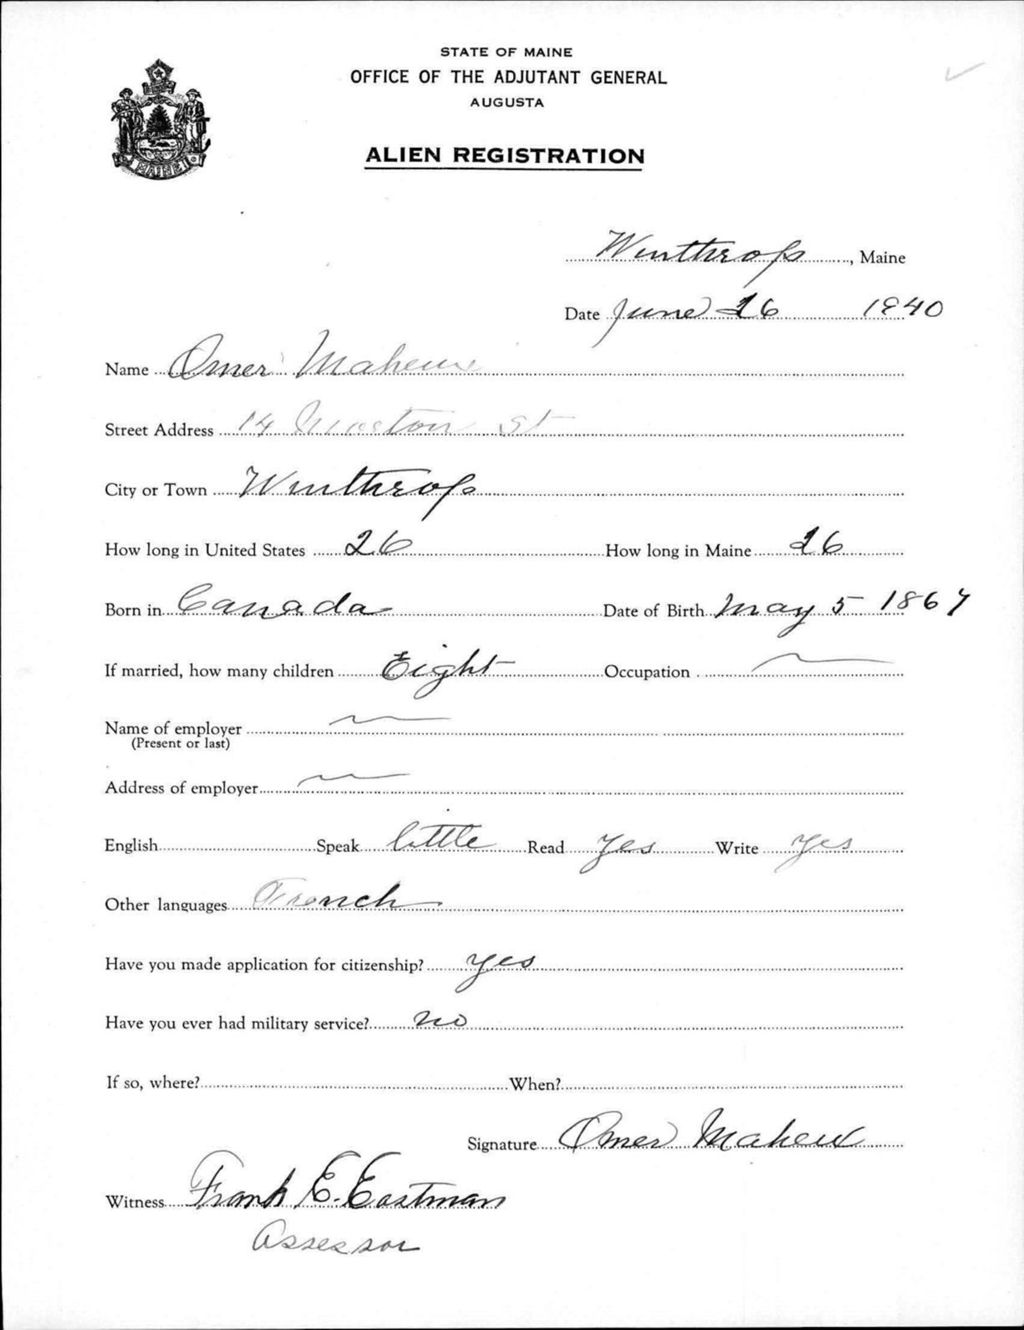 STATE OF MAINE
OFFICE OF THE ADJUTANT GENERAL
AUGUSTA
ALIEN REGISTRATION
Winthrop, Maine
Date June 26 1940
Name Omer Maheux
Street Address 14 St
City or Town Winthrop
How long in United States 26 How long in Maine 26
Born in Canada Date of Birth May 5 1867
If married, how many children Eight Occupation
Name of employer
(Present or last)
Address of employer
English Speak little Read Yes Write Yes
Other languages French
Have you made application for citizenship? yes
Have you ever had military service? no
If so, where? When?
Signature Omer Maheux
Witness Frank E. Eastman
Assessor